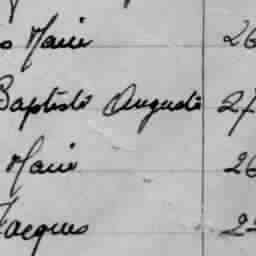 Marie 26
Baptiste Auguste 27
Marie 26
Jacques 22